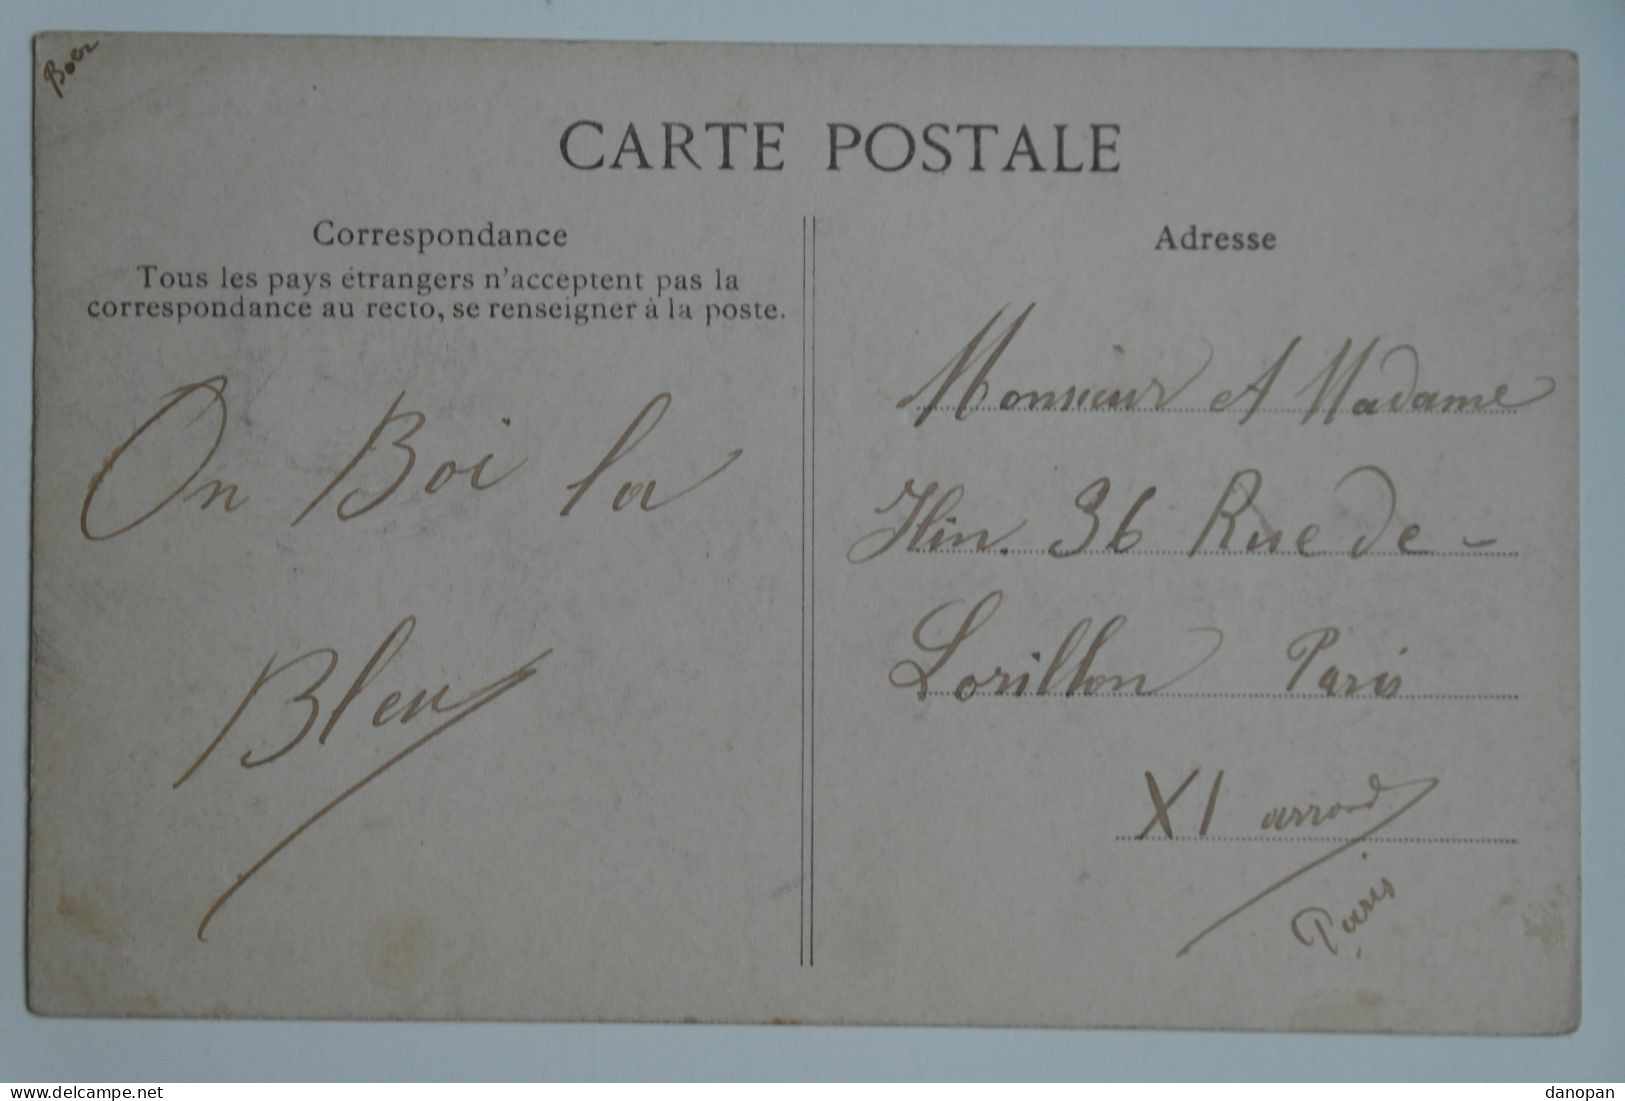 Boer
CARTE POSTALE
Correspondance
Tous les pays étrangers n'acceptent pas la
correspondance au recto, se renseigner à la poste.
On Boi la
Bleu
Adresse
Monsieur et Madame
Hin. 36 Rue de -
Lorillon Paris
XI arrond
Paris
www.delcampe.net
danopan